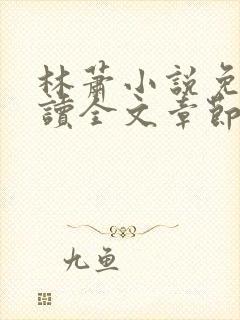 林蕭小說免
讀全文章節
九鱼